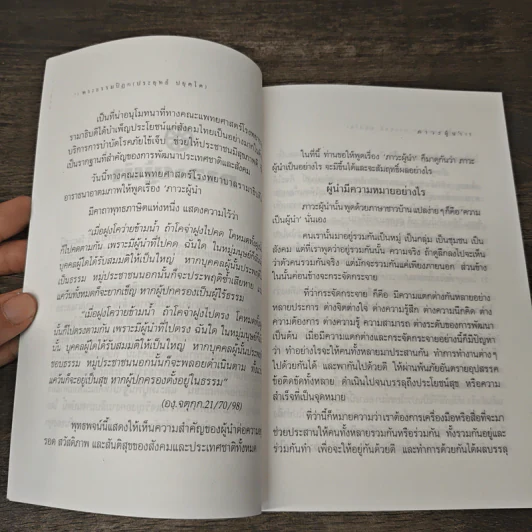 พระธรรมปิฎก (ประยุทธ์ ปยุตฺโต)
เป็นที่น่าอนุโมทนาที่ทางคณะแพทยศาสตร์โรงพยาบาล
รามาธิบดีได้บำเพ็ญประโยชน์แก่สังคมไทยเป็นอย่างมากใน
บริการการบำบัดโรคภัยไข้เจ็บ ช่วยให้ประชาชนมีสุขภาพดี
เป็นรากฐานที่สำคัญของการพัฒนาประเทศชาติและสังคม
วันนี้ทางคณะแพทยศาสตร์โรงพยาบาลรามาธิบดี
อาราธนาอาตมภาพให้พูดเรื่อง 'ภาวะผู้นำ
มีคาถาพุทธภาษิตแห่งหนึ่ง แสดงความไว้ว่า
"เมื่อฝูงโคว่ายข้ามน้ำ ถ้าโคจ่าฝูงไปคด โคหมดทั้งฝูง
ก็ไปคดตามกัน เพราะมีผู้นำที่ไปคด ฉันใด ในหมู่มนุษย์ก็
บุคคลผู้ใดได้รับสมมติให้เป็นใหญ่ หากบุคคลผู้นั้นประพ
ชอบธรรม หมู่ประชาชนนอกนั้นก็จะประพฤติซ้ำเสียหาย
แคว้นทั้งหมดก็จะยากเข็ญ หากผู้ปกครองเป็นผู้ไร้ธรรม
"เมื่อฝูงโคว่ายข้ามน้ำ ถ้าโคจ่าฝูงไปตรง โคหมดทั้ง
นั้นก็ไปตรงตามกัน เพราะมีผู้นำที่ไปตรง ฉันใด ในหมู่มนุษย์ก็
นั้น บุคคลผู้ใดได้รับสมมติให้เป็นใหญ่ หากบุคคลผู้นั้นประพ
ชอบธรรม หมู่ประชาชนนอกนั้นก็จะพลอยดำเนินตาม ทั้ง
แคว้นก็จะอยู่เป็นสุข หากผู้ปกครองตั้งอยู่ในธรรม"
(องฺ.จตุกฺก.21/70/98)
พุทธพจน์นี้แสดงให้เห็นความสำคัญของผู้นำต่อความ
รอด สวัสดิภาพ และสันติสุขของสังคมและประเทศชาติทั้งหมด
ภาวะผู้นำ
ในที่นี้ ท่านขอให้พูดเรื่อง 'ภาวะผู้นำ' ก็มาดูกันว่า ภาวะ
ผู้นำเป็นอย่างไร จะมีขึ้นได้และจะสัมฤทธิ์ผลอย่างไร
ผู้นำมีความหมายอย่างไร
ภาวะผู้นำนั้นพูดด้วยภาษาชาวบ้าน แปลง่ายๆ ก็คือ 'ความ
เป็นผู้นำ' นั่นเอง
คนเรานั้นมาอยู่รวมกันเป็นหมู่ เป็นกลุ่ม เป็นชุมชน เป็น
สังคม แต่ที่เราพูดว่าอยู่รวมกันนั้น ความจริง ถ้าดูลึกลงไปจะเห็น
ว่าตัวคนรวมกันจริง แต่มักจะรวมกันแค่เพียงภายนอก ส่วนข้าง
ในนั้นค่อนข้างจะกระจัดกระจาย
ที่ว่ากระจัดกระจาย ก็คือ มีความแตกต่างกันหลายอย่าง
หลายประการ ต่างจิตต่างใจ ต่างความรู้สึก ต่างความนึกคิด ต่าง
ความต้องการ ต่างความรู้ ความสามารถ ต่างระดับของการพัฒนา
เป็นต้น เมื่อมีความแตกต่างและกระจัดกระจายอย่างนี้ก็มีปัญหา
ว่า ทำอย่างไรจะให้คนทั้งหลายมาประสานกัน ทำการทำงานต่างๆ
ไปด้วยกันได้ และพากันไปด้วยดี ให้ผ่านพ้นภัยอันตรายอุปสรรค
ข้อติดขัดทั้งหลาย ดำเนินไปจนบรรลุถึงประโยชน์สุข หรือความ
สำเร็จที่เป็นจุดหมาย
ที่ว่านี้ก็หมายความว่าเราต้องการเครื่องมือหรือสื่อที่จะมา
ช่วยประสานให้คนทั้งหลายรวมกันหรือร่วมกัน ทั้งรวมกันอยู่และ
ร่วมกันทำ เพื่อจะให้อยู่กันด้วยดี และทำการด้วยกันได้ผลบรรลุ